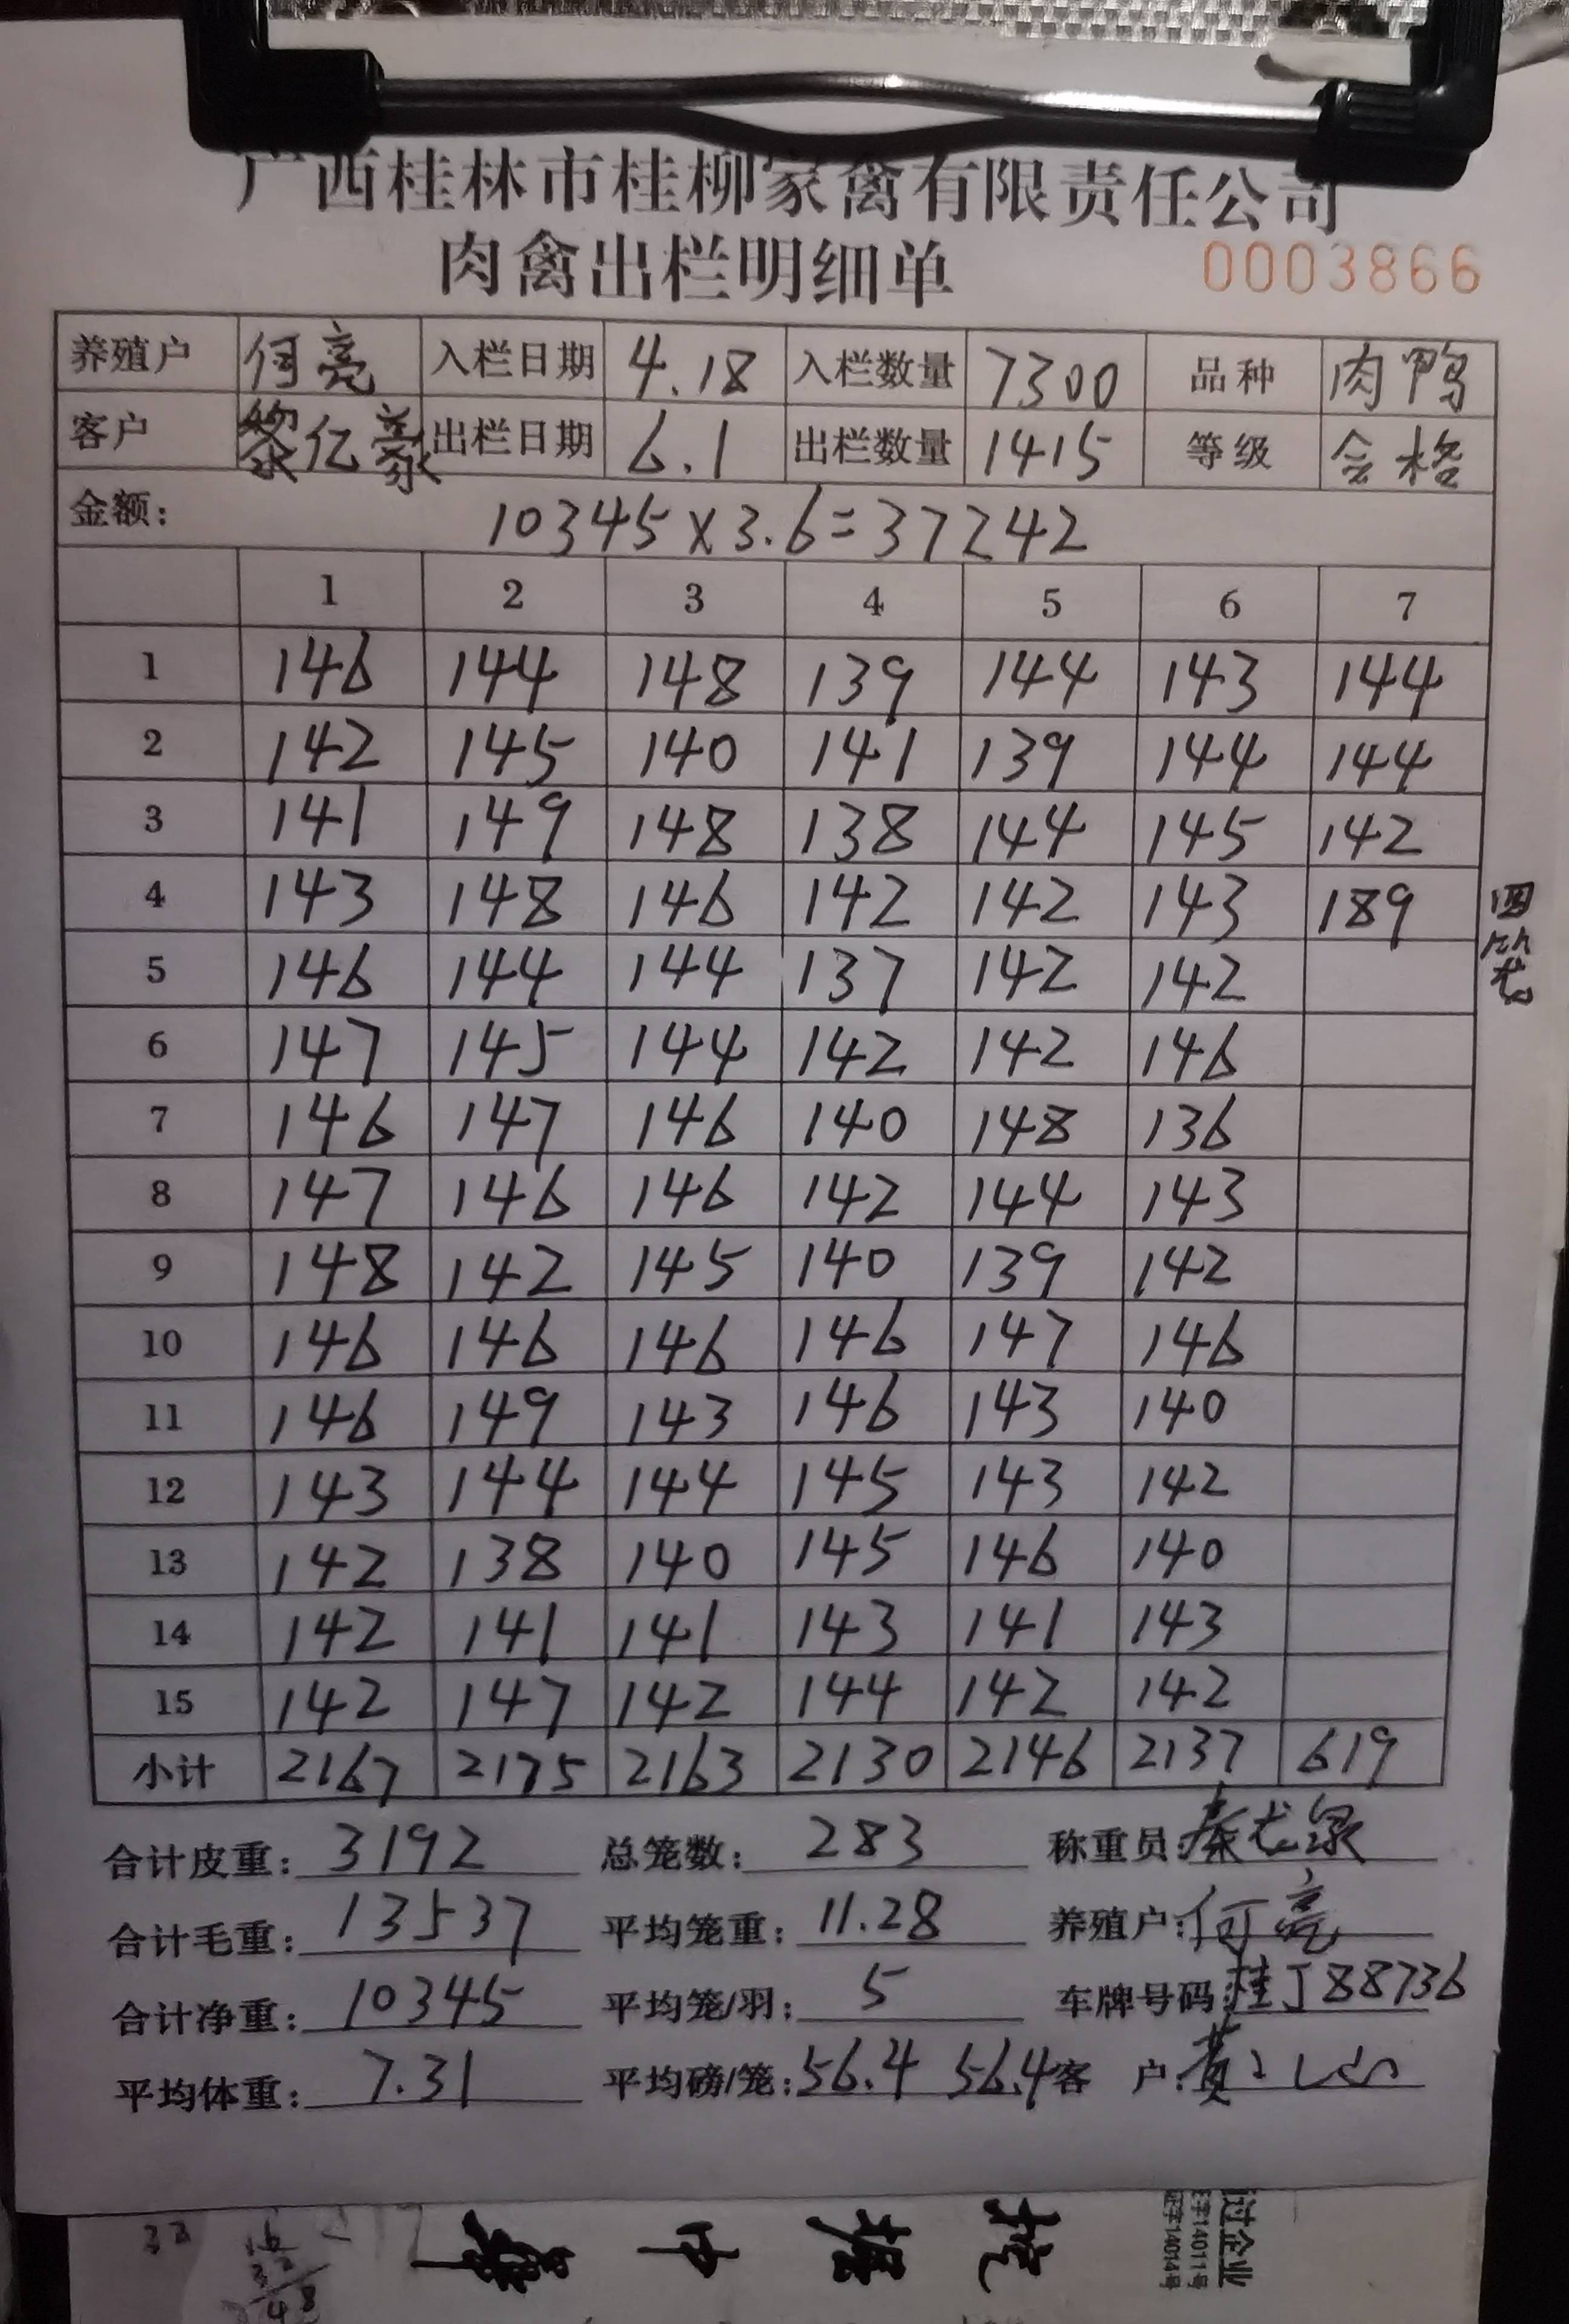 广西桂林市桂柳家禽有限责任公司
肉禽出栏明细单 0003866
养殖户 何亮 入栏日期 4.18 入栏数量 7300 品种 肉鸭
客户 黎亿豪 出栏日期 6.1 出栏数量 1415 等级 合格
金额: 10345×3.6=37242
1 2 3 4 5 6 7
1 146 144 148 139 144 143 144
2 142 145 140 141 139 144 144
3 141 149 148 138 144 145 142
4 143 148 146 142 142 143 189 四笼
5 146 144 144 137 142 142
6 147 145 144 142 142 146
7 146 147 146 140 148 136
8 147 146 146 142 144 143
9 148 142 145 140 139 142
10 146 146 146 146 147 146
11 146 149 143 146 143 140
12 143 144 144 145 143 142
13 142 138 140 145 146 140
14 142 141 141 143 141 143
15 142 147 142 144 142 142
小计 2167 2175 2163 2130 2146 2137 619
合计皮重: 3192 总笼数: 283 称重员: 秦龙泉
合计毛重: 13537 平均笼重: 11.28 养殖户: 何亮
合计净重: 10345 平均笼/羽: 5 车牌号码: 桂J88736
平均体重: 7.31 平均磅/笼: 56.4 56.4 客 户: 黄
过企业
14011号
字14014号